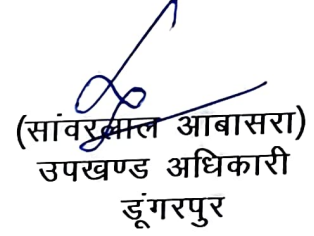 (सांवरलाल आबासरा)
उपखण्ड अधिकारी
डूंगरपुर